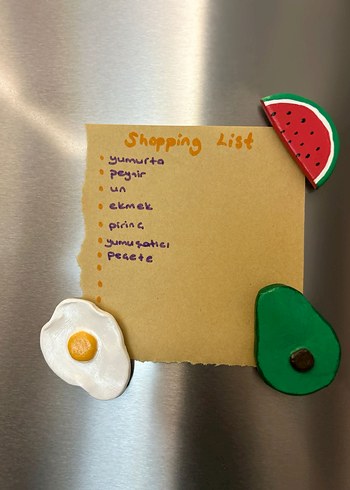 Shopping List
yumurta
peynir
un
ekmek
pirinç
yumuşatıcı
peçete